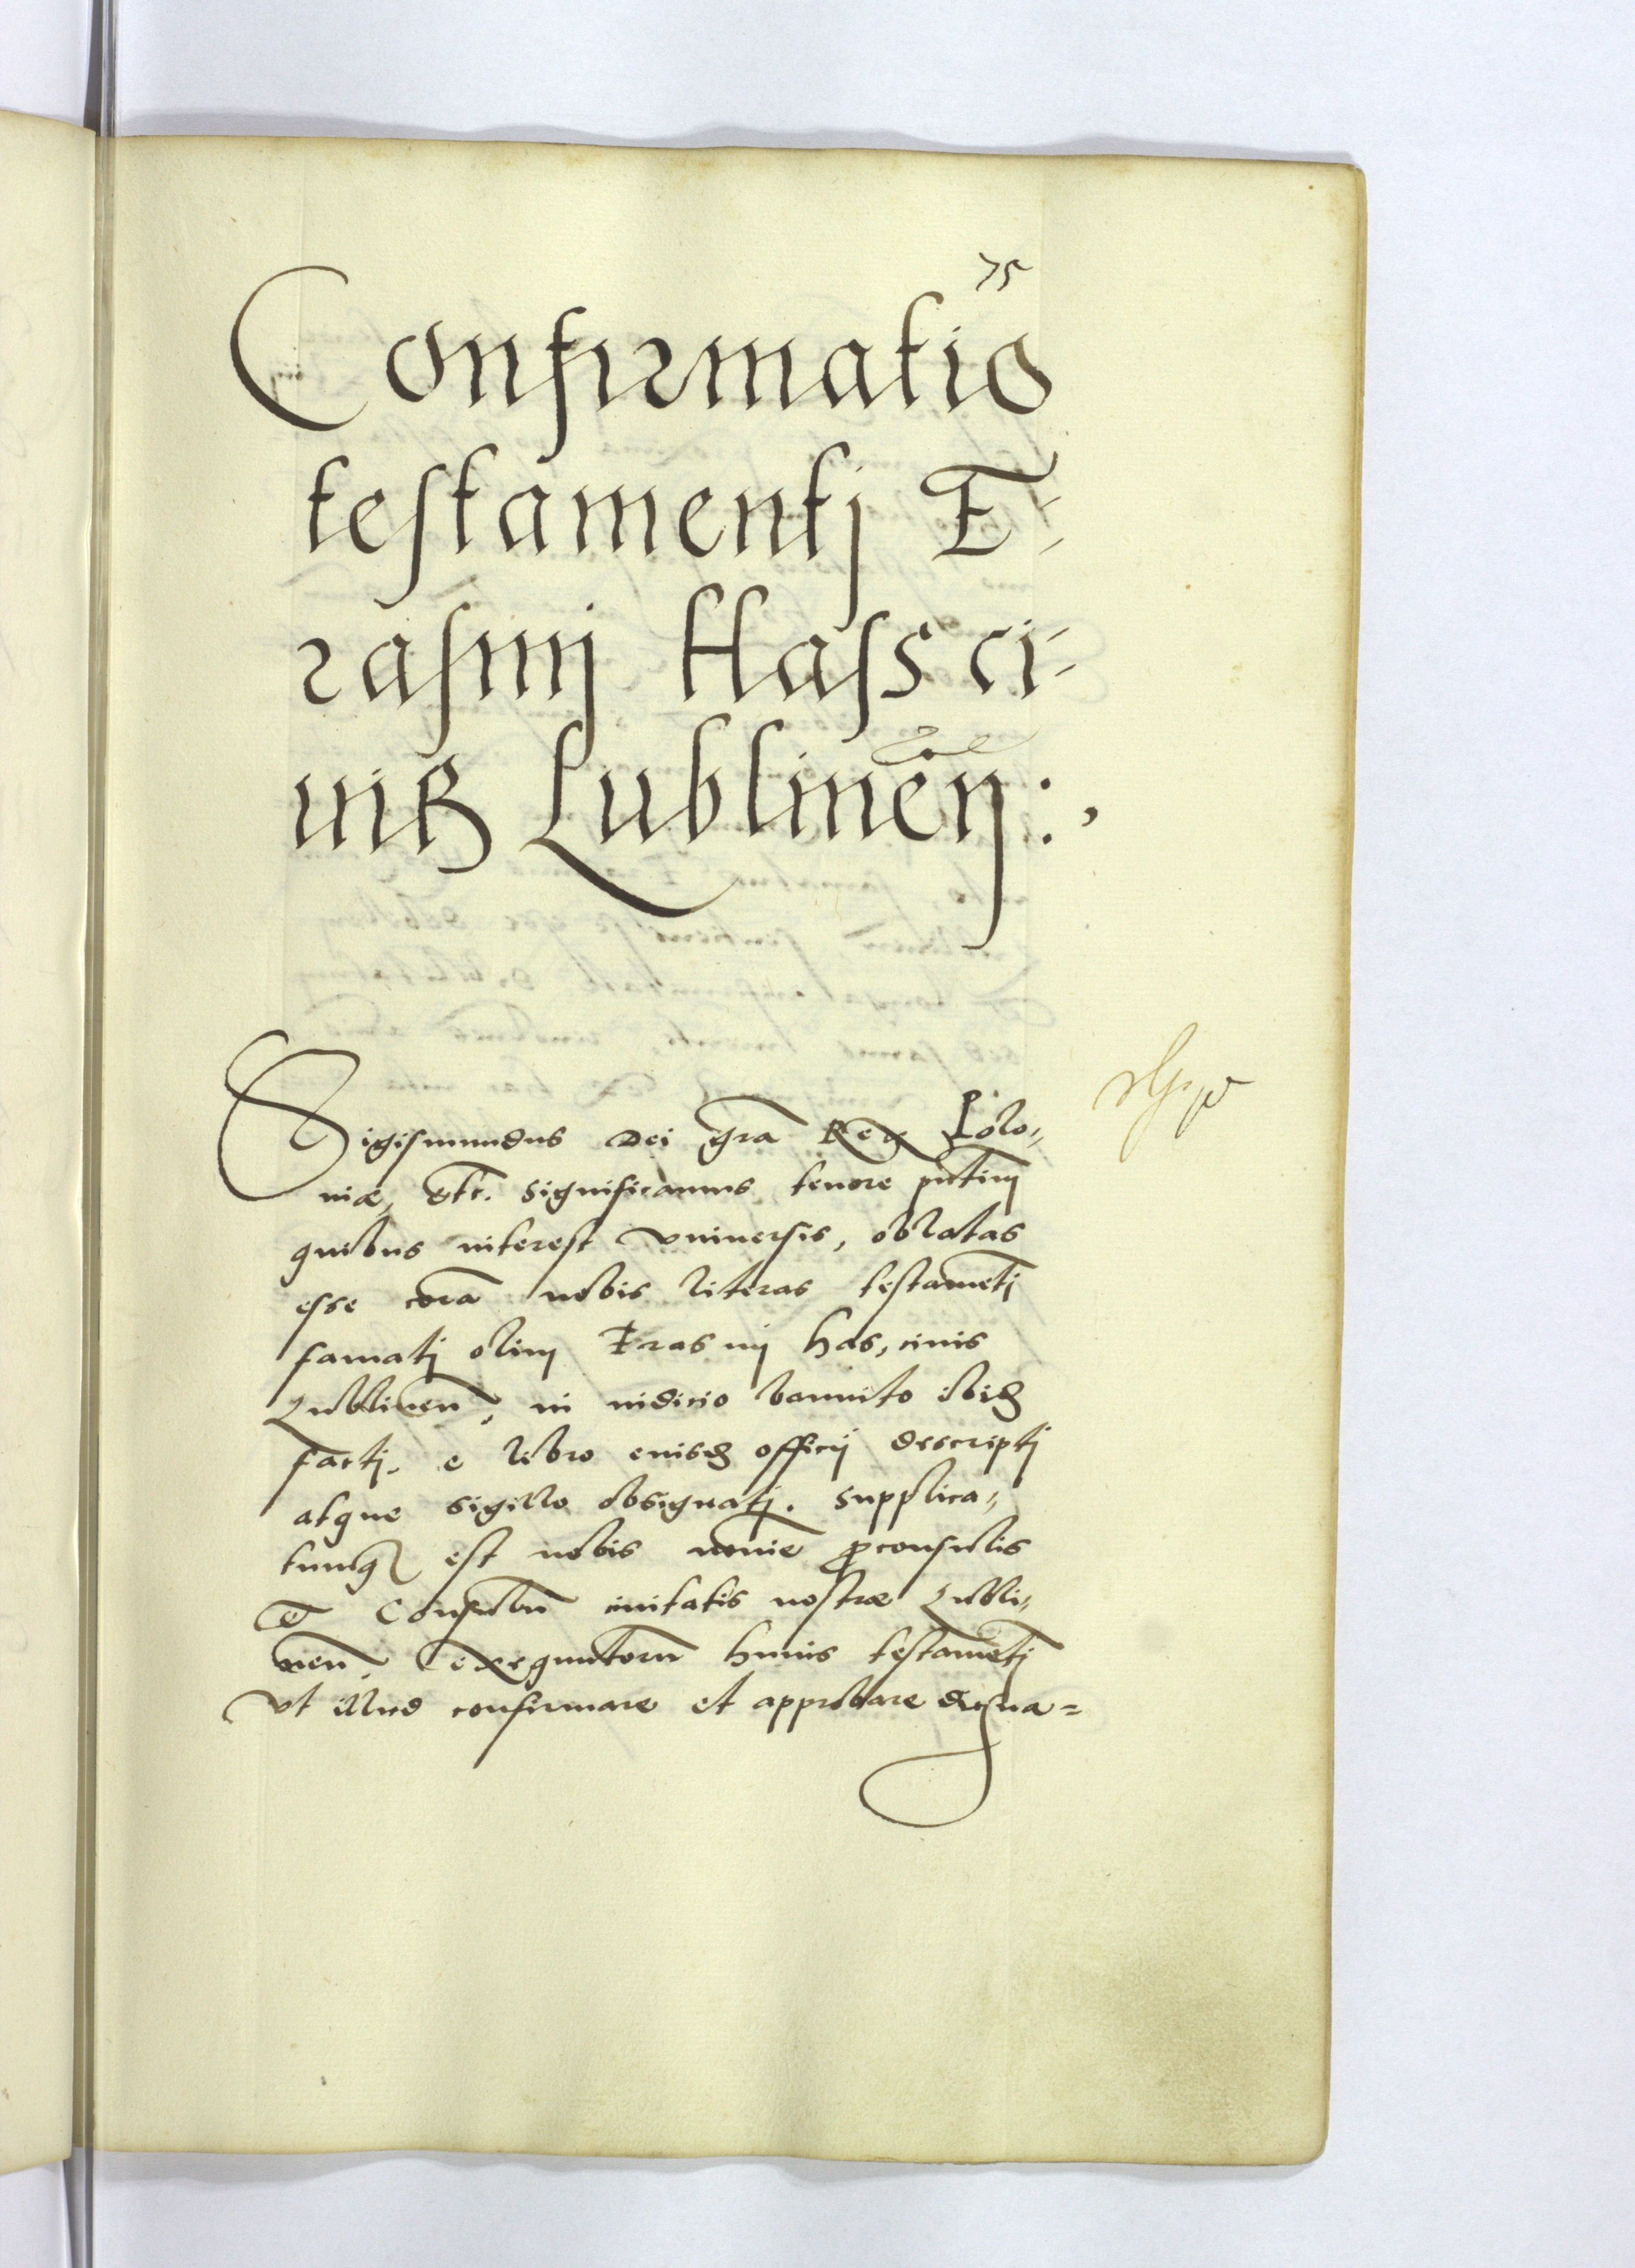 75
Confirmatio
testamentj E-
rasmj Hass ci-
uiß Lublinen̄:,
Sigismundus Dei gr̄a Rex Polo„
niæ, etc. Significamus tenore pn̄tiū
quibus interest vniuersis, oblatas
esse corā nobis literas testamētj
famatj olim Erasmj Has, ciuis
Lublinen̄, in iudicio bannito ibidꝫ
factj. e libro eiusdꝫ officij descriptj
atque sigillo obsignatj. Supplica„
tumqꝫ est nobis noīe ꝓconsulis
et Consulū ciuitatis nostræ Lubli„
nen̄, exequutorū huius testamētj
vt illud confirmare et approbare digna=